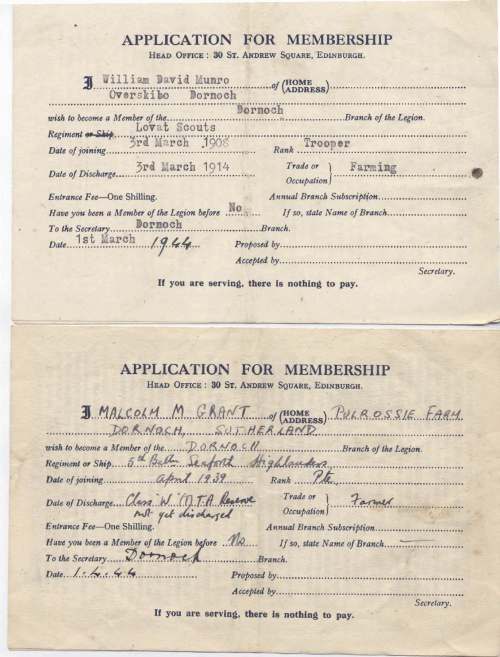 APPLICATION FOR MEMBERSHIP
HEAD OFFICE : 30 ST. ANDREW SQUARE, EDINBURGH.
I William David Munro of (HOME ADDRESS)
Overskibo Dornoch
wish to become a Member of the Dornoch Branch of the Legion.
Regiment or Ship Lovat Scouts
Date of joining 3rd March 1908 Rank Trooper
Date of Discharge 3rd March 1914 Trade or Occupation Farming
Entrance Fee—One Shilling. Annual Branch Subscription
Have you been a Member of the Legion before No If so, state Name of Branch
To the Secretary Dornoch Branch.
Date 1st March 1944 Proposed by
Accepted by
Secretary.
If you are serving, there is nothing to pay.
APPLICATION FOR MEMBERSHIP
HEAD OFFICE : 30 ST. ANDREW SQUARE, EDINBURGH.
I MALCOLM M GRANT of (HOME ADDRESS) PULROSSIE FARM
DORNOCH, SUTHERLAND
wish to become a Member of the DORNOCH Branch of the Legion.
Regiment or Ship 5th Battn Seaforth Highlanders
Date of joining April 1939 Rank Pte
Date of Discharge Class 'W' T.A Reserve Trade or Occupation Farmer
not yet discharged
Entrance Fee—One Shilling. Annual Branch Subscription
Have you been a Member of the Legion before No If so, state Name of Branch —
To the Secretary Dornoch Branch.
Date 1.4.44 Proposed by
Accepted by
Secretary.
If you are serving, there is nothing to pay.